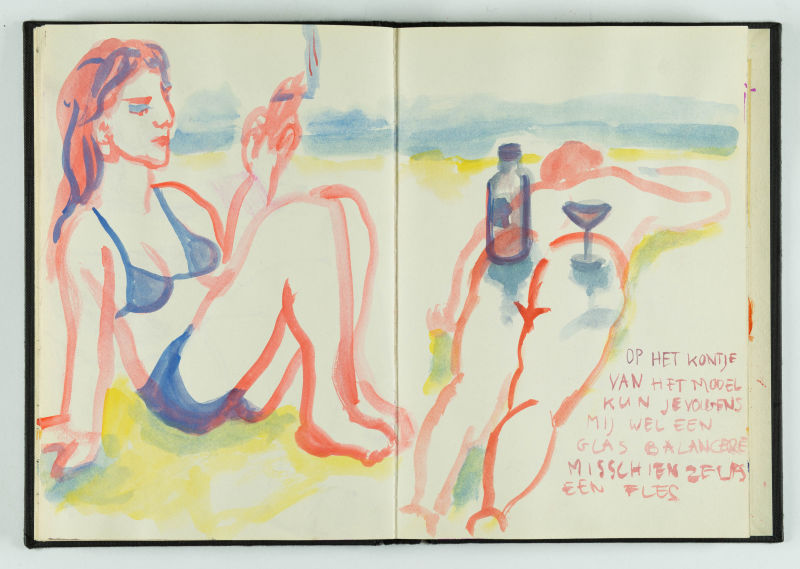 OP HET KONTJE
VAN HET MODEL
KUN JE VOLGENS
MIJ WEL EEN
GLAS BALANCERE
MISSCHIEN ZELFS
EEN FLES